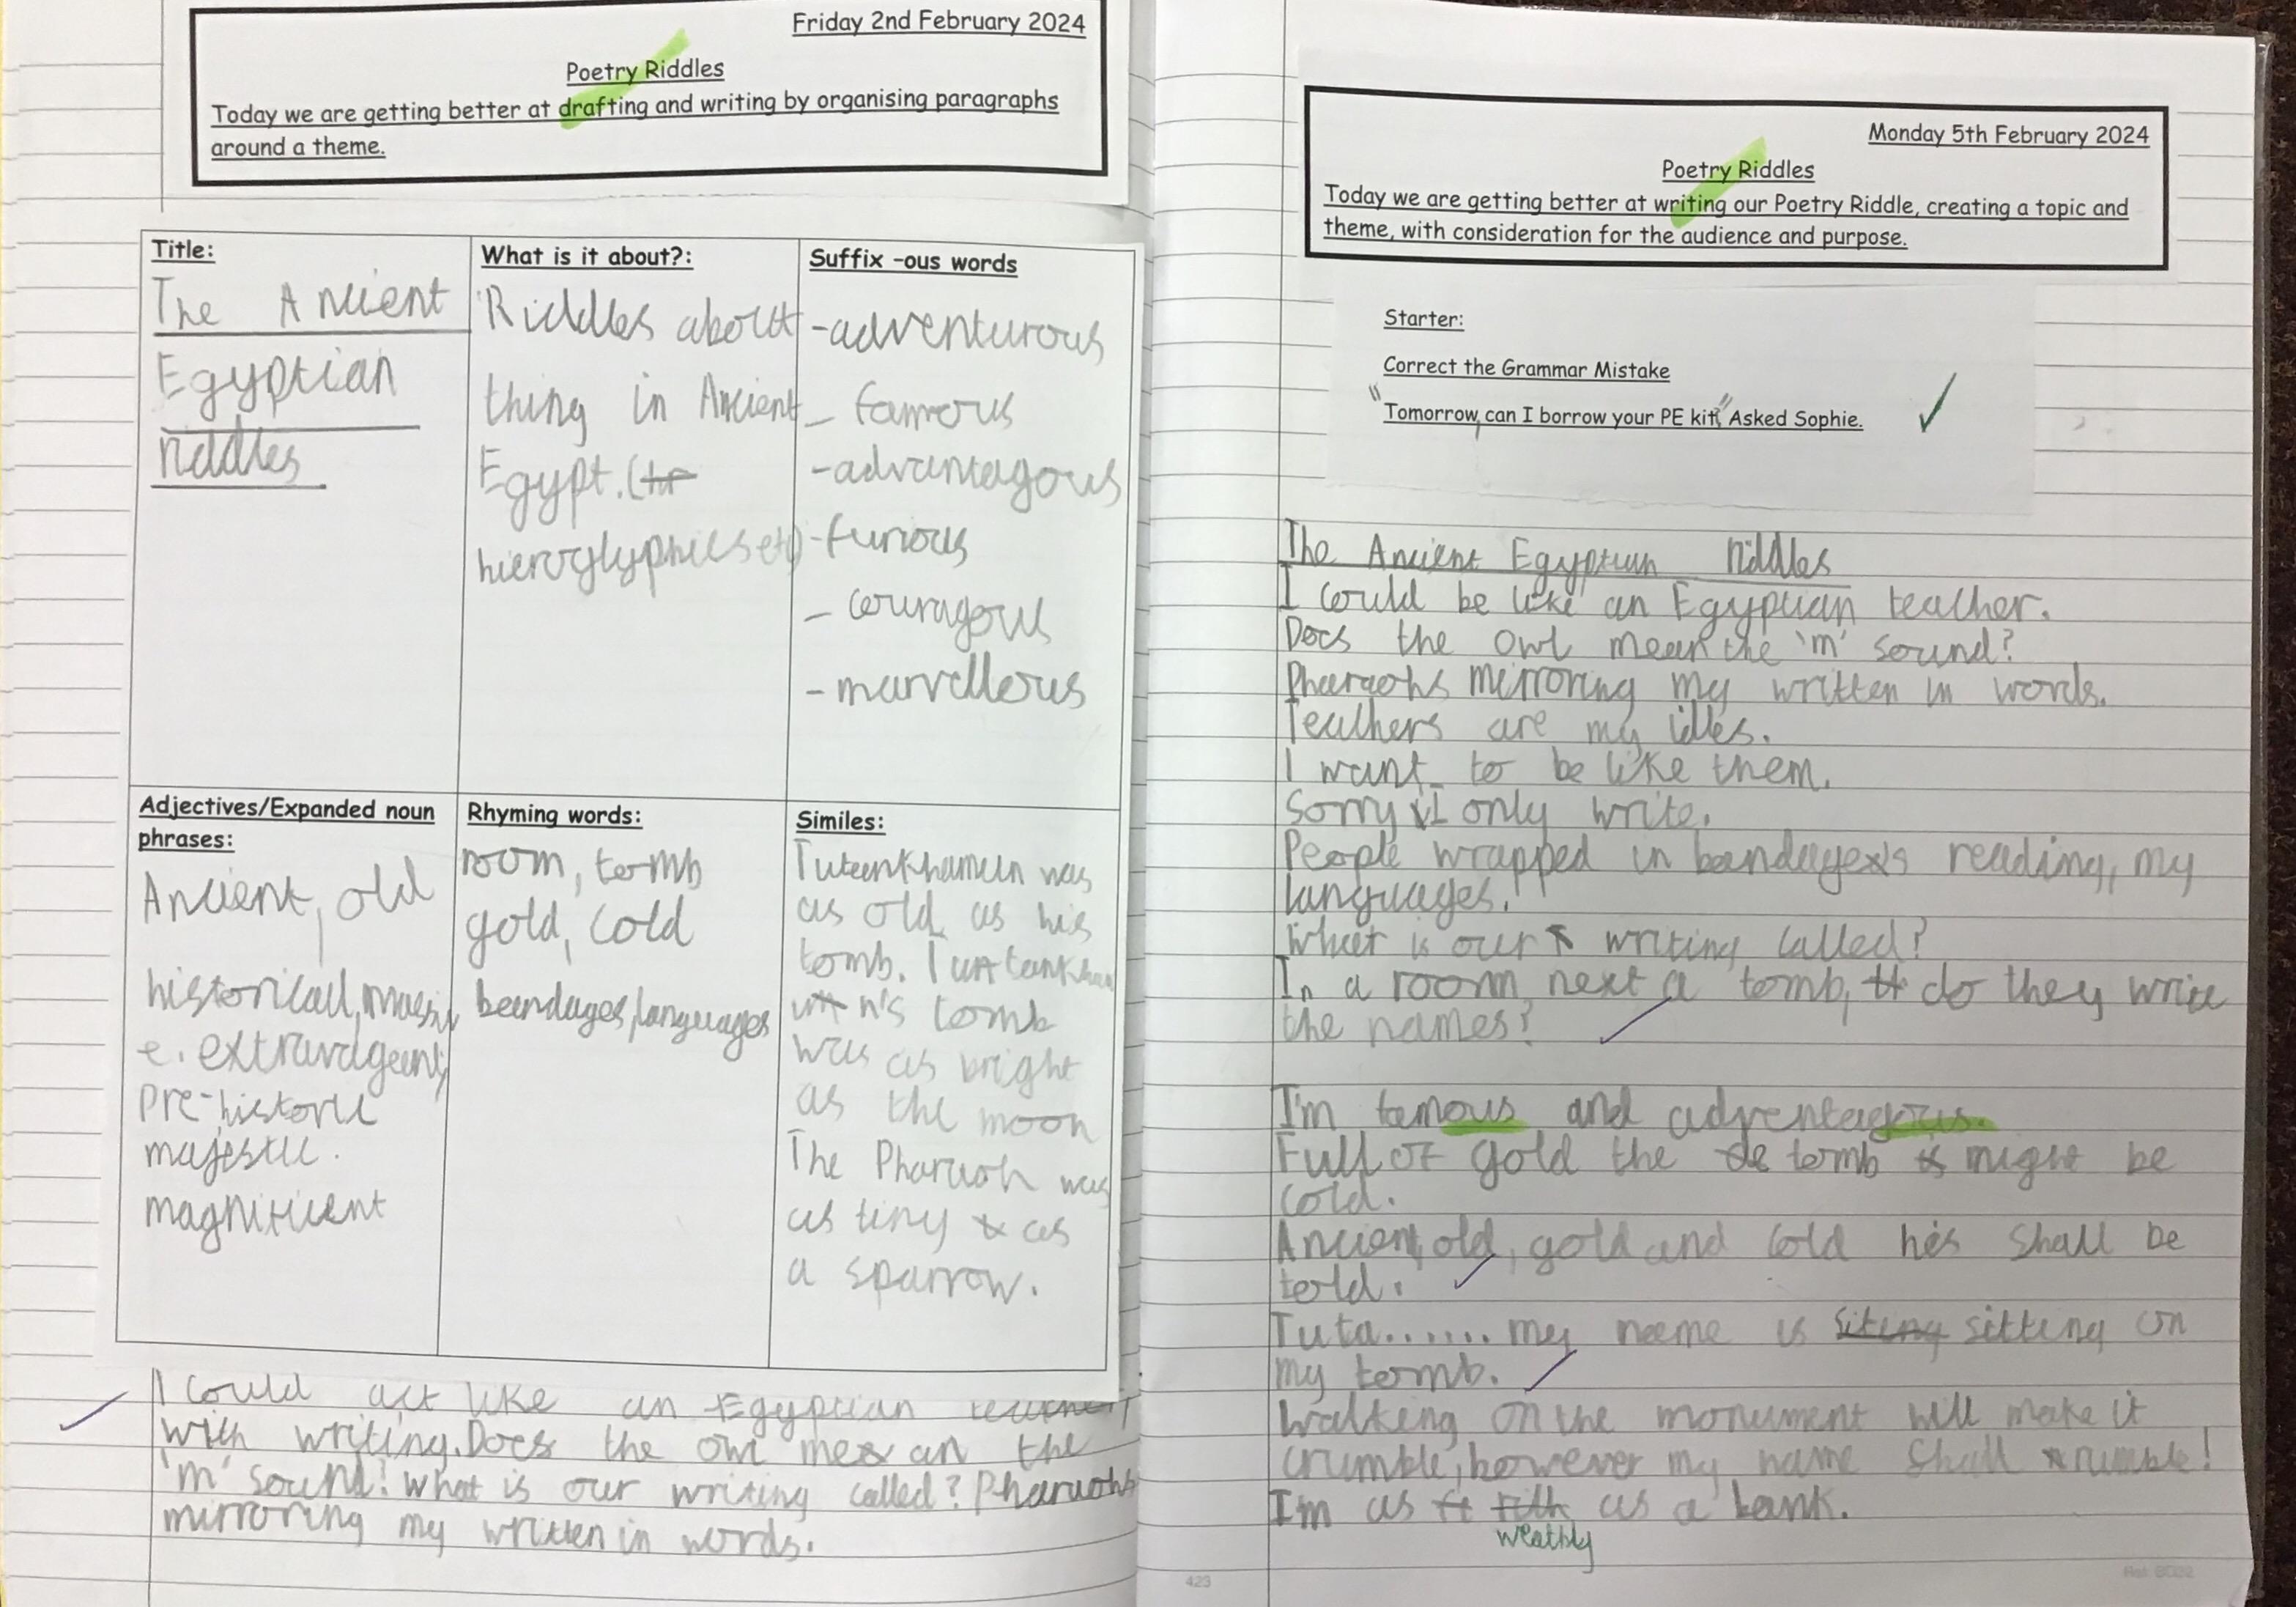 Friday 2nd February 2024
Poetry Riddles
Today we are getting better at drafting and writing by organising paragraphs
around a theme.
Title:
The Ancient
Egyptian
riddles
What is it about?:
Riddles about
thing in Ancient
Egypt. (
hieroglyphics etc)
Suffix -ous words
-adventurous
- famous
-advantagous
-furious
- couragous
- marvellous
Adjectives/Expanded noun
phrases:
Ancient, old
historical, massiv
e. extravagant,
Pre-historic
majestic.
magnificent
Rhyming words:
room, tomb
gold, cold
bandages, languages
Similes:
Tutankhamun was
as old as his
tomb. Tutankham
un's tomb
was as bright
as the moon
The Pharaoh was
as tiny as
a sparrow.
I could act like an Egyptian teacher
with writing. Does the owl mean the
'm' sound? What is our writing called? Pharaohs
mirroring my written in words.
Monday 5th February 2024
Poetry Riddles
Today we are getting better at writing our Poetry Riddle, creating a topic and
theme, with consideration for the audience and purpose.
Starter:
Correct the Grammar Mistake
"Tomorrow, can I borrow your PE kit?" Asked Sophie.
The Ancient Egyptian riddles
I could be like an Egyptian teacher.
Does the owl mean the 'm' sound?
Pharaohs mirroring my written in words.
Teachers are my idles.
I want to be like them.
Sorry I only write.
People wrapped in bandages reading, my
languages.
What is our writing called?
In a room next a tomb, do they write
the names?
I'm famous and adventagous.
Full of gold the tomb might be
cold.
Ancient, old, gold and cold his shall be
told.
Tuta....... my name is siting sitting on
my tomb.
Walking on the monument will make it
crumble, however my name shall rumble!
I'm as rich as a bank.
weathly
423